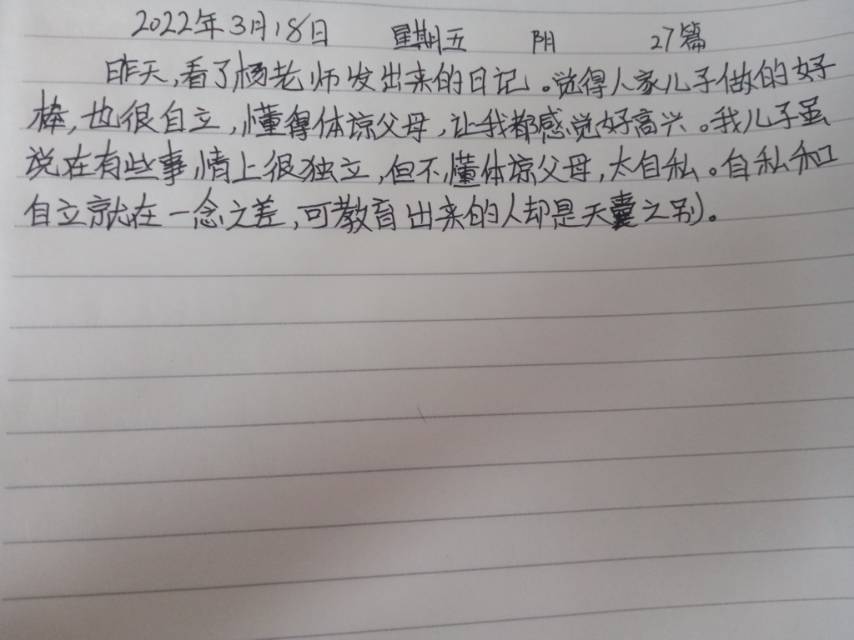 2022年3月18日 星期五 阴 27篇
昨天,看了杨老师发出来的日记。觉得人家儿子做的好
棒,也很自立,懂得体谅父母,让我都感觉好高兴。我儿子虽
说在有些事情上很独立,但不懂体谅父母,太自私。自私和
自立就在一念之差,可教育出来的人却是天囊之别。